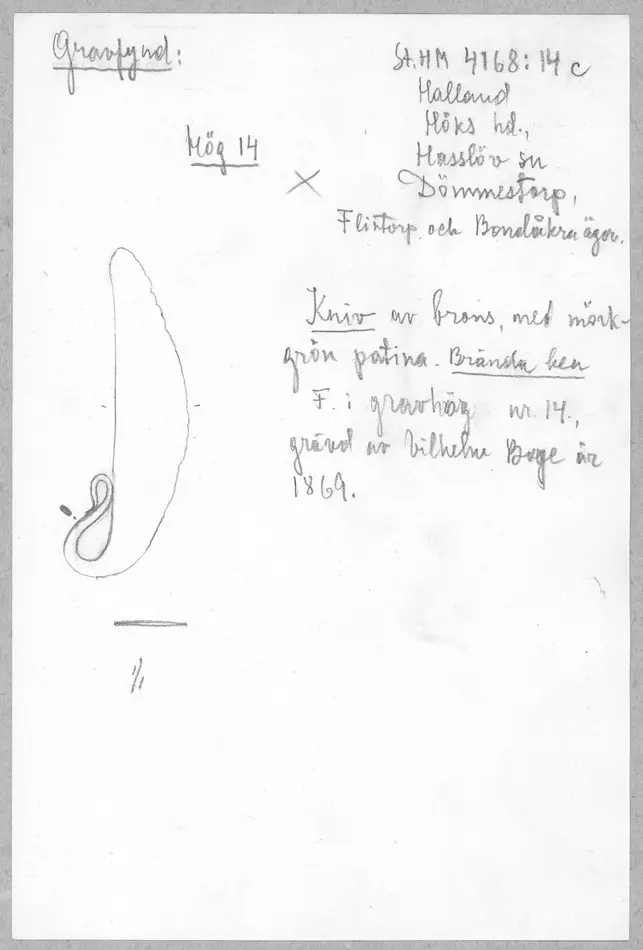 Gravfynd:
St.HM 4168:14 c
Halland
Höks hd.,
Hasslöv sn
Hög 14
Dömmestorp,
Flintorp och Bondåkra ägor.
Kniv av brons, med mörk-
grön patina. Brända ben
F. i gravhög nr. 14.,
grävd av Vilhelm Boye år
1869.
1/1